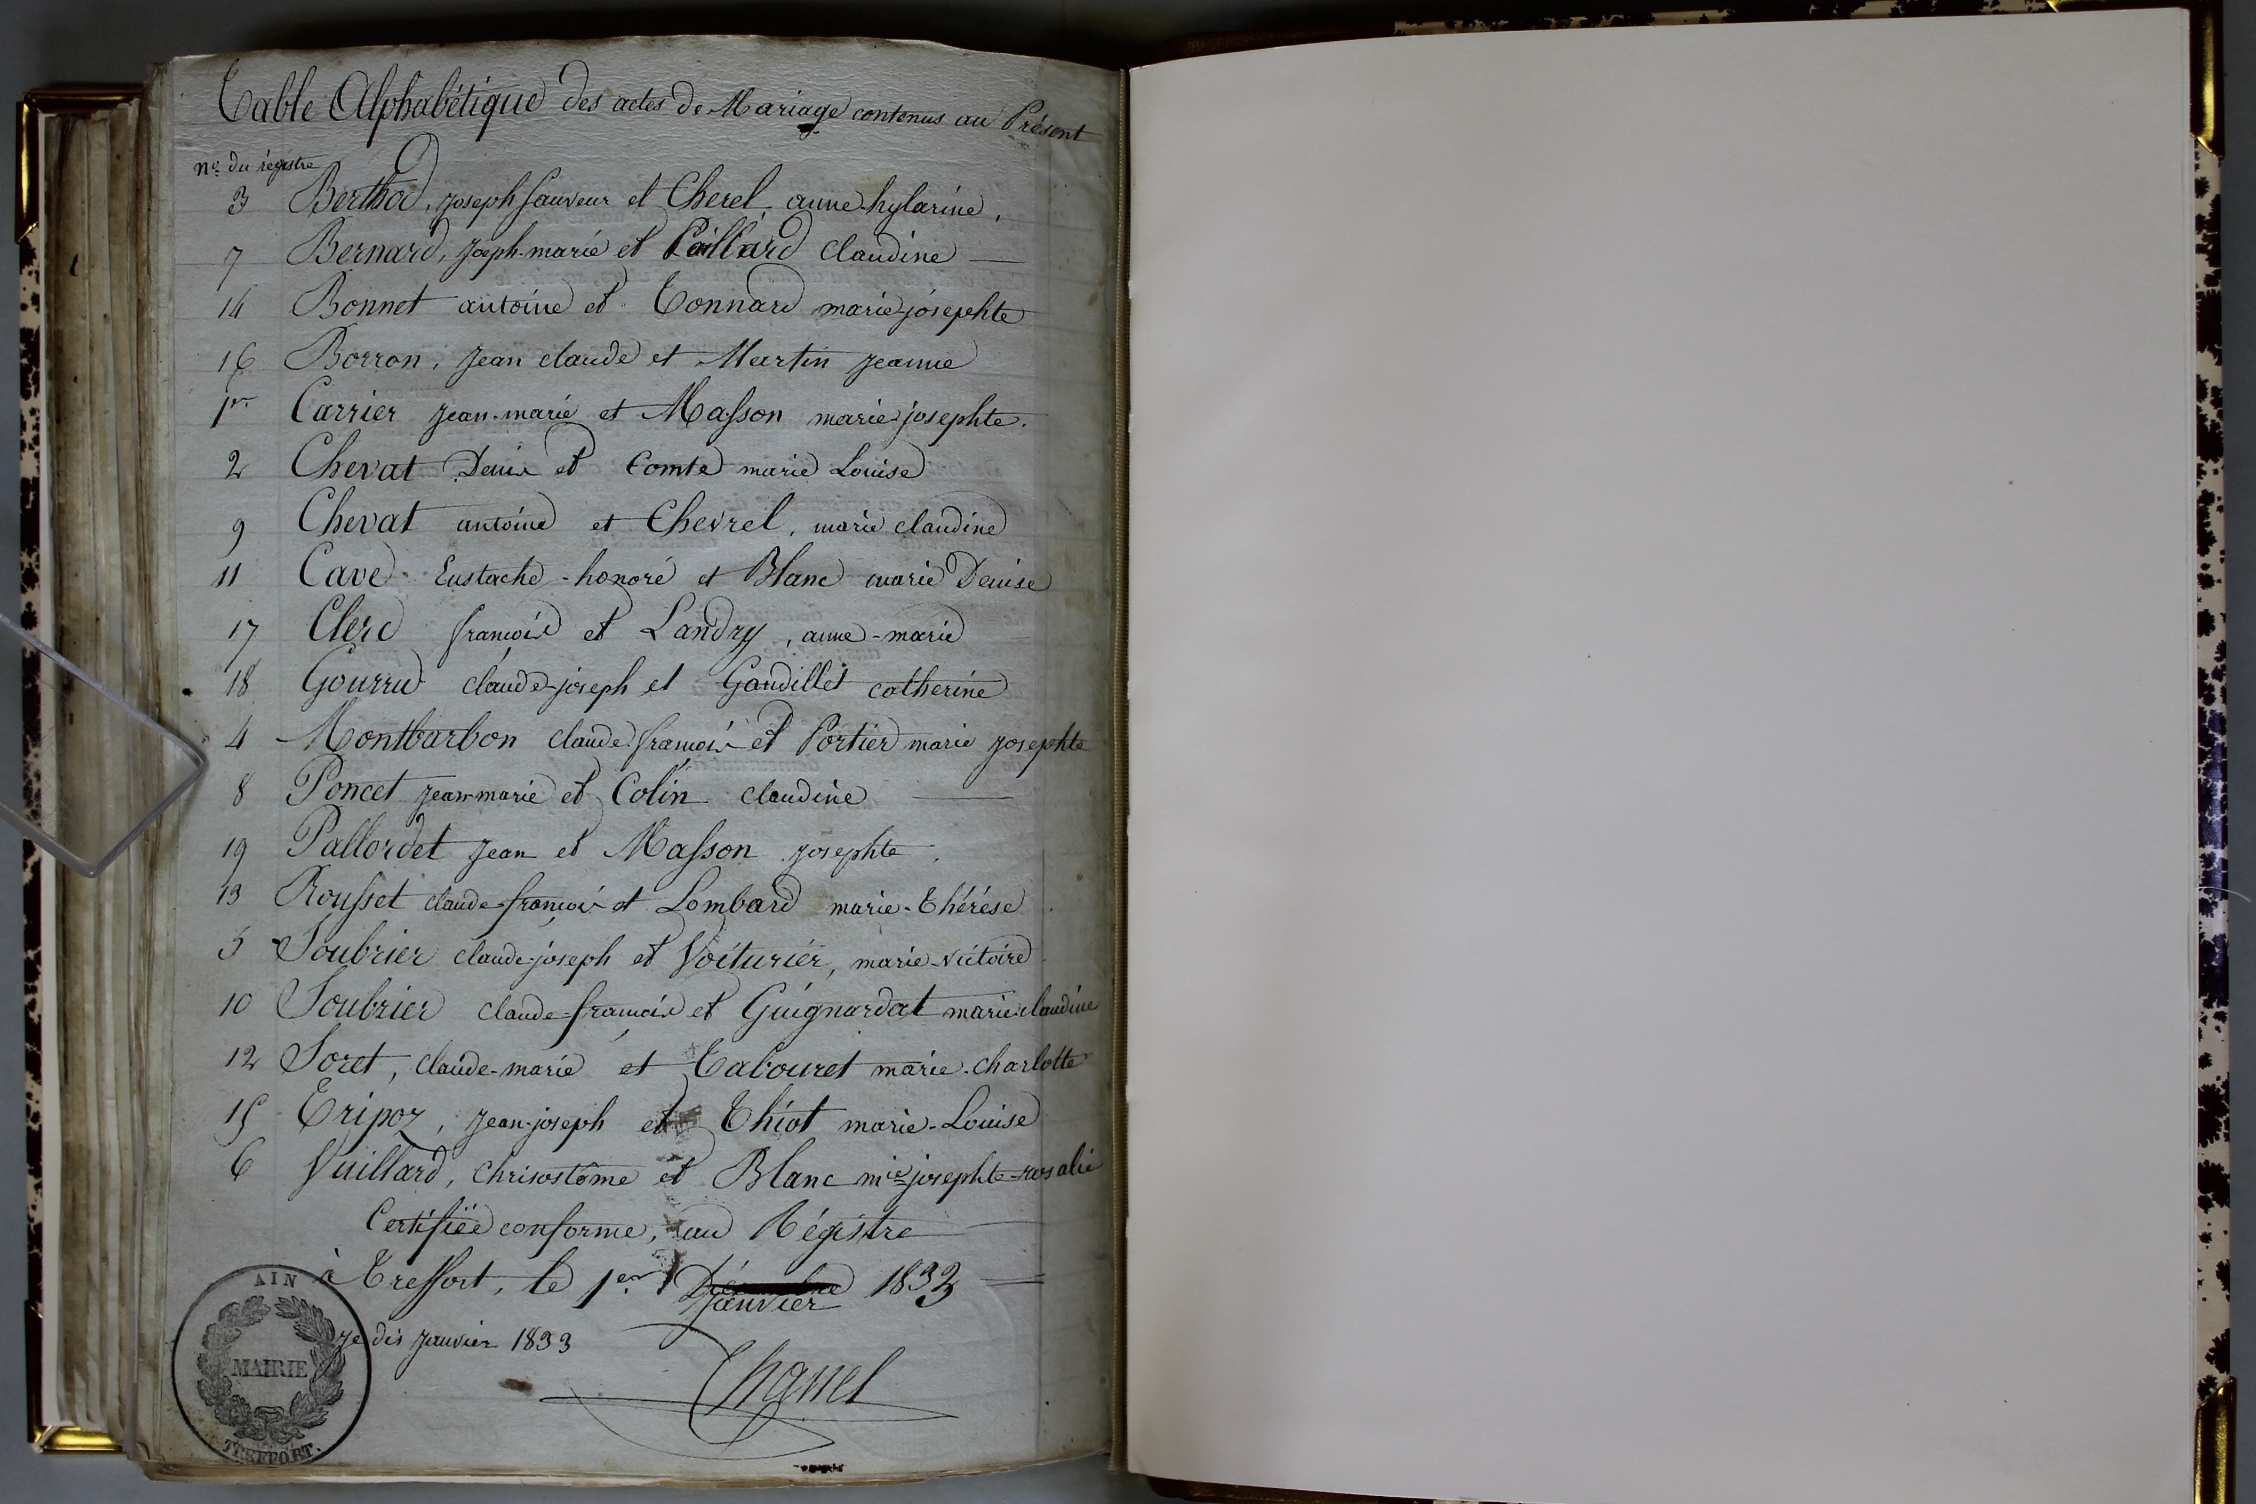 Table Alphabétique des actes de Mariage contenus au Présent
No. du régistre
3 Berthod, joseph sauveur et Cherel anne-hylarine.
7 Bernard, joseph-marie et Paillard claudine
14 Bonnet antoine et Tonnard marie-josephte
16 Borron, jean claude et Martin jeanne
1er Carrier jean-marie et Masson marie-josephte.
2 Chevat Denis et Comte marie Louise
9 Chevat antoine et Chevrel, marie claudine
11 Cave Eustache-honoré et Blanc marie Denise
17 Clerc francois et Landry, anne-marie
18 Gourru claude-joseph et Gandillet catherine
4 Montbarbon claude-francois et Portier marie josephte
8 Poncet jean-marie et Colin claudine
19 Pallordet jean et Masson josephte
13 Rousset claude-francois et Lombard marie-thérèse
5 Soubrier claude-joseph et Voiturier, marie-victoire
10 Soubrier claude-francois et Guignardat marie-claudine
12 Soret, claude-marie et Tabouret marie-charlotte
15 Tripoz, jean-joseph et Thiot marie-Louise
6 Vuillard, chrisostôme et Blanc mie josephte-rosalie
Certifiée conforme, au Régistre
à Treffort, le 1er Janvier 1833
je dis janvier 1833
AIN
MAIRIE
TREFFORT.